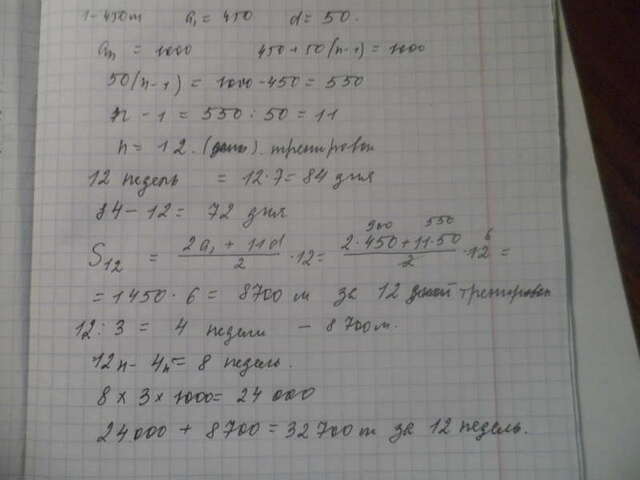 1 - 450 m a₁ = 450 d = 50.
aₙ = 1000 450 + 50(n-1) = 1000
50(n-1) = 1000 - 450 = 550
n - 1 = 550 : 50 = 11
n = 12. тренировок
12 недель = 12·7 = 84 дня
84 - 12 = 72 дня
S₁₂ = (2a₁ + 11d)/2 · 12 = (2·450 + 11·50)/2 · 12 = 900 550 6
= 1450 · 6 = 8700 м за 12 тренировок
12 : 3 = 4 недели - 8700 м.
12н - 4н = 8 недель.
8 × 3 × 1000 = 24 000
24 000 + 8700 = 32 700 m за 12 недель.